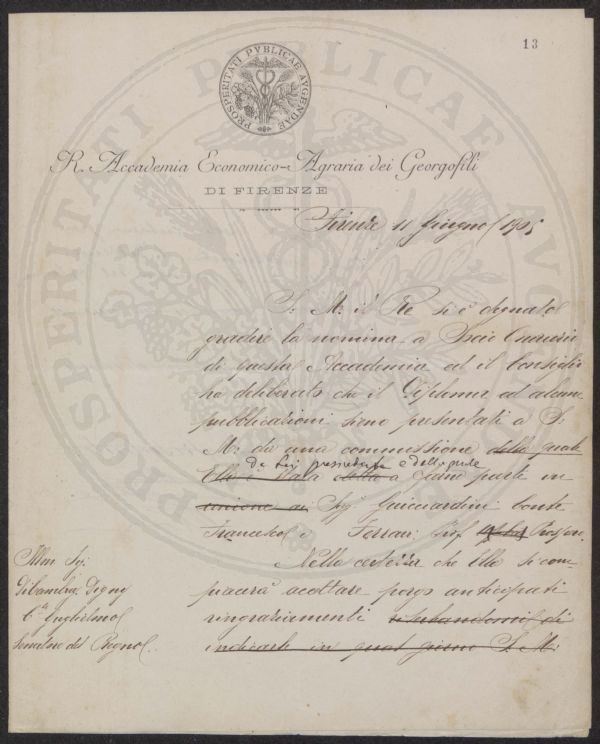 13
PROSPERITATI PVBLICAE AVGENDAE
R. Accademia Economico-Agraria dei Georgofili
DI FIRENZE
Firenze 11 Giugno 1905
S. M. il Re si è degnato
gradire la nomina a Socio Onorario
di questa Accademia ed il Consiglio
ha deliberato che il Diploma ed alcune
pubblicazioni siano presentati a S.
M. da una commissione della quale
da Lei presieduta e della quale
Ella è stata a fanno parte in
unione ai Sigg. Guicciardini Conte
Francesco e Ferrari Prof. Prospero
Nella certezza che Ella si com
piacerà accettare porgo anticipati
ringraziamenti di
indicarle in qual giorno S. M.
Illmo Sig.
Cambray Digny
Cte Guglielmo
Senatore del Regno